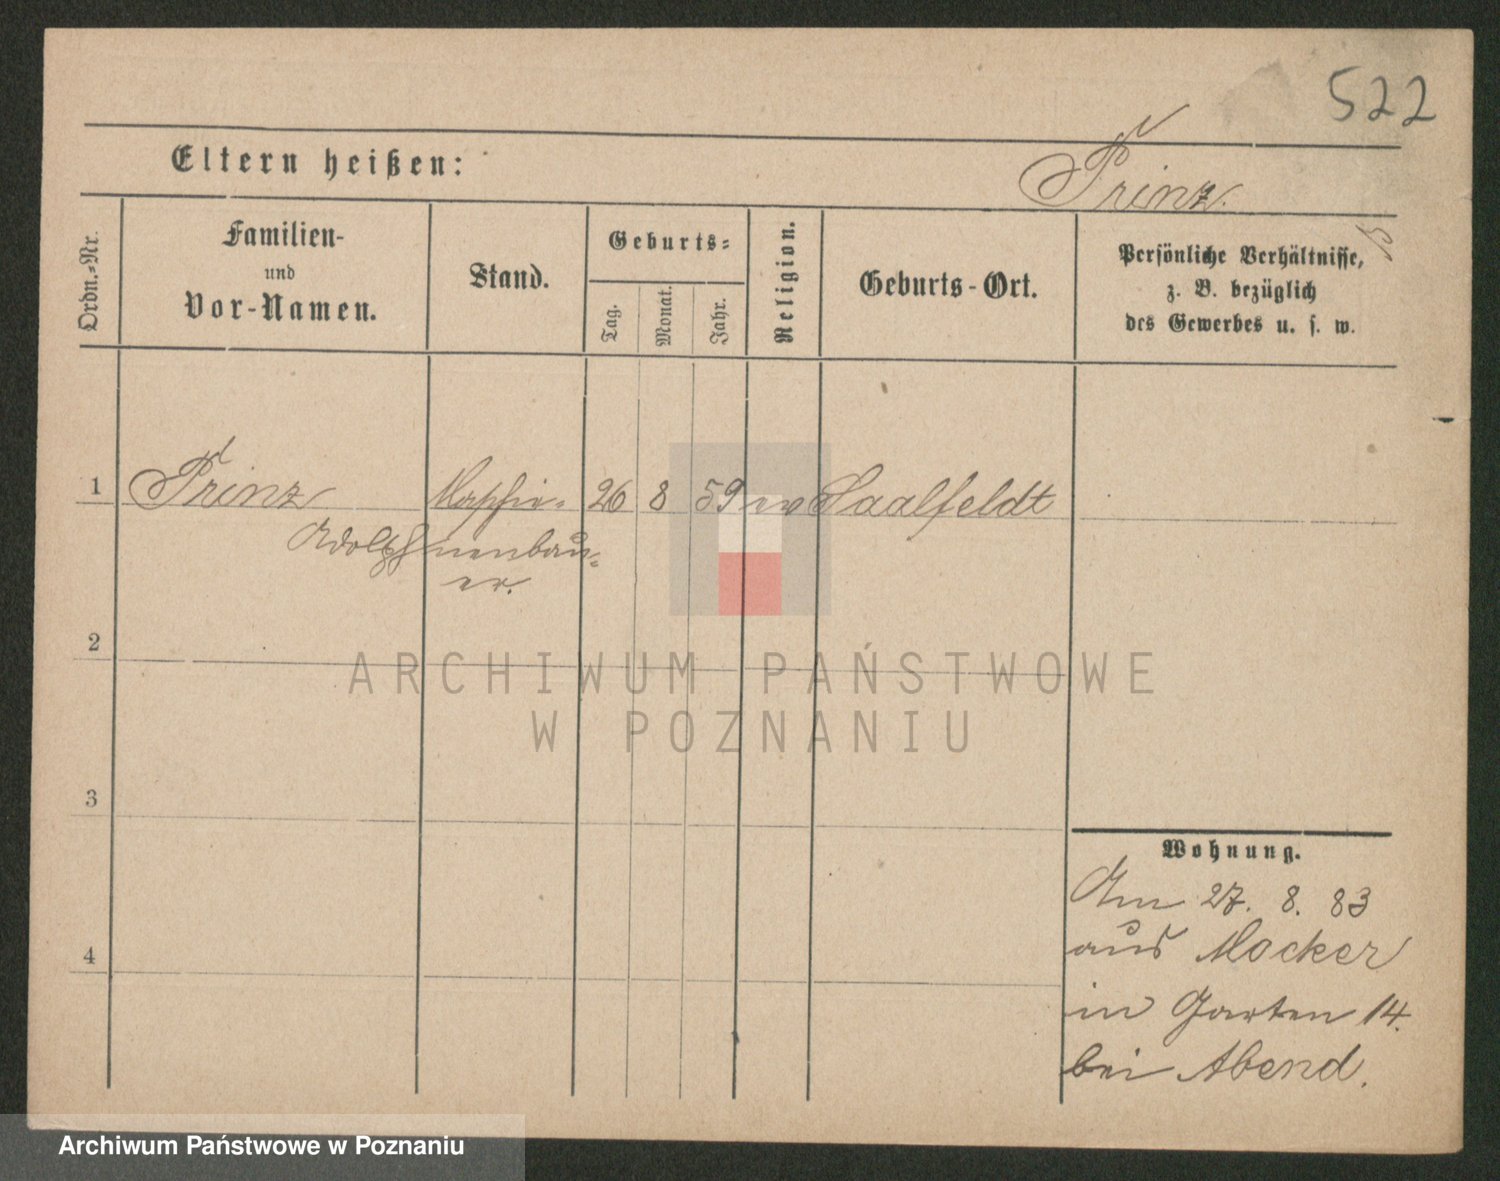 522
Eltern heißen:
Prinz.
Ordn.=Nr.
Familien-
und
Vor-Namen.
Stand.
Geburts=
Tag.
Monat.
Jahr.
Religion.
Geburts-Ort.
Persönliche Verhältnisse,
z. B. bezüglich
des Gewerbes u. s. w.
1 Prinz Maschi= 26 8 59 ev Saalfeldt
Adolph nenbau=
er.
2
ARCHIWUM PAŃSTWOWE
W POZNANIU
3
Wohnung.
Am 27. 8. 83
aus Mocker
in Garten 14.
bei Abend.
4
Archiwum Państwowe w Poznaniu